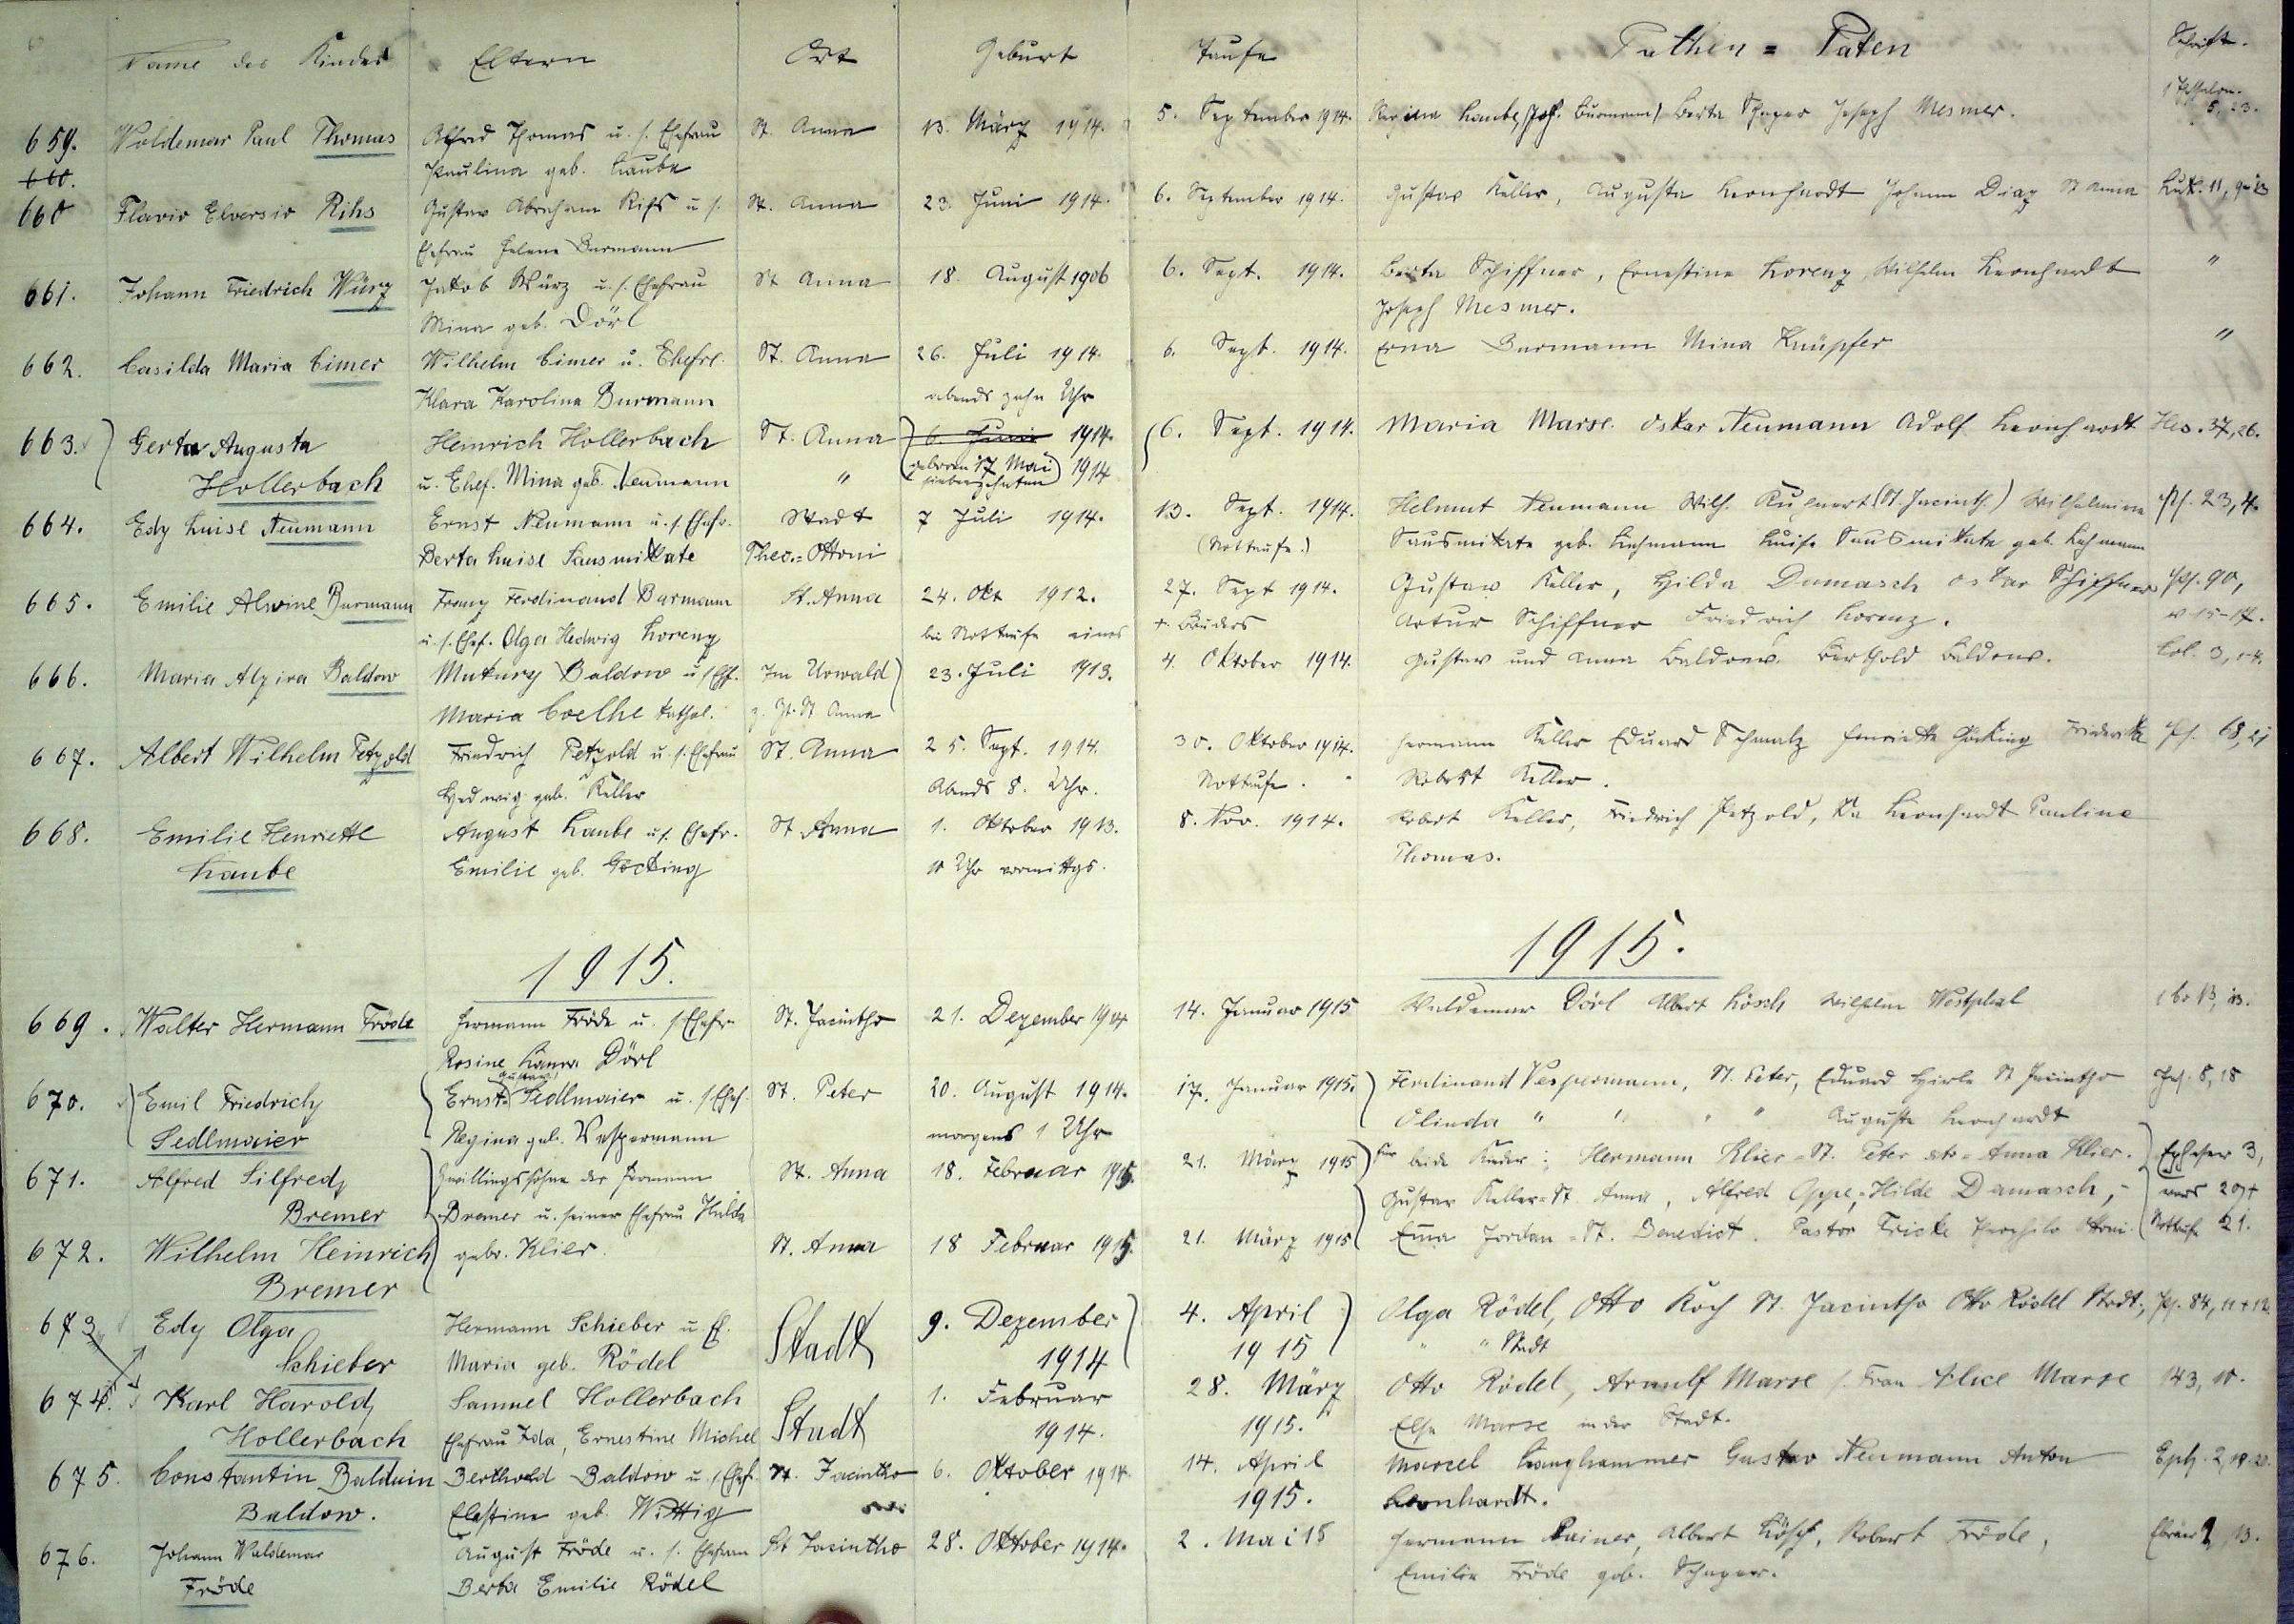 Name des Kindes Eltern Ort Geburt Taufe Pathen = Paten Schrift.
659. Woldemar Paul Thomas Alfred Thomas u. s. Ehefrau St. Anna 13. März 1914. 5. September 1914. Regina Laube, Joh. Burmann, Berta Joseph Mesmer. 5, 23.
660. Paulina geb. Laube
660 Flavio Elversio Rihs Gustav Abraham Rihs u. s. St. Anna 23. Juni 1914. 6. September 1914. Gustav Keller, Augusta Leonhardt Johann Diaz St Anna Luk. 11, 9-13
Ehefrau Helene Burmann
661. Johann Friedrich Würz Jakob Würz u. s. Ehefrau St Anna 18. August 1906 6. Sept. 1914. Berta Schiffner, Ernestine Lorenz, Wilhelm Leonhardt "
Mina geb. Dörl Joseph Mesmer.
662. Casilda Maria Cimer Wilhelm Cimer u. Ehefr. St. Anna 26. Juli 1914. 6. Sept. 1914. Erna Burmann Mina Knüpfer "
Klara Karolina Burmann abends zehn Uhr
663. Gerta Augusta Heinrich Hollerbach St. Anna 6. Juni 1914. 6. Sept. 1914. Maria Marse. Oskar Neumann Adolf Leonhardt Hes. 37, 26.
Hollerbach u. Ehef. Mina geb. Neumann " (geboren 17 Mai 1914
siebenzehnten)
664. Edy Luise Neumann Ernst Neumann u. s. Ehefr. Stadt 7 Juli 1914. 13. Sept. 1914. Helmut Neumann Wilh. (St. Jacinth.) Wilhelmine Ps. 23, 4.
Berta Luise Sausmikate Theo.=Ottoni (Nottaufe.) Sausmikate geb. Lehmann Luise Sausmikate geb. Lehmann
665. Emilie Alwine Burmann Franz Ferdinand Burmann St. Anna 24. Okt 1912. 27. Sept 1914. Gustav Keller, Hilda Damasch Oskar Schiffner Ps. 90,
u. s. Ehef. Olga Hedwig Lorenz bei Nottaufe eines Bruders Artur Schiffner Friedrich Lorenz. v 15-17.
666. Maria Alzira Baldow Baldow u. s. Ehf. Im Urwald 23. Juli 1913. 4. Oktober 1914. Gustav und Anna Baldow. Berthold Baldow. Col. 3, 14.
Maria Coelhe kathol. z. Zt. St Anna
667. Albert Wilhelm Petzold Friedrich Petzold u. s. Ehefrau St. Anna 25. Sept. 1914. 30. Oktober 1914. Hermann Keller Eduard Schmalz Henriette Göcking Friederike Ps. 68, 21
Hedwig geb. Keller Abends 8. Uhr. Nottaufe. Robert Keller.
668. Emilie Henriette August Laube u. s. Ehefr. St Anna 1. Oktober 1913. 8. Nov. 1914. Robert Keller, Friedrich Petzold, Leonhardt Pauline
Laube Emilie geb. Göcking 10 Uhr vormittgs. Thomas.
1915. 1915.
669. Walter Hermann Fröde Hermann Fröde u. s. Ehefr. St. Jacintho 21. Dezember 1914 14. Januar 1915 Waldemar Dörl Albert Lösch Wilhelm Westphal 1 Co 13, 13.
Rosine Laura Dörl
670. Emil Friedrich Ernst Gustav Sedlmaier u. s. Ehef. St. Peter 20. August 1914. 17. Januar 1915. Ferdinand Vespermann, St. Peter, Eduard Hirle St Jacintho Jes. 8, 18
Sedlmaier Regina geb. Vespermann morgens 1 Uhr Olinda " " " " Auguste Leonhardt
671. Alfred Silfred, Zwillingssöhne des Hermann St. Anna 18. Februar 1915. 21. März 1915 Für beide Kinder: Hermann Klier = St. Peter = Anna Klier. Epheser 3,
Bremer Bremer u. seiner Ehefrau Hulda Gustav Keller = St. Anna, Alfred Oppe, = Hilde Damasch, - vers 20+
672. Wilhelm Heinrich geb. Klier. St. Anna 18 Februar 1915. 21. März 1915 Ema Jordan = St. Benedict. Pastor Fricke Theophilo Ottoni. Nottaufe 21.
Bremer
673 Edy Olga Hermann Schieber u. Eh. Stadt 9. Dezember 4. April Olga Rödel, Otto Koch St. Jacintho Otto Rödel Stadt, Ps. 84, 11+12.
Schieber Maria geb. Rödel 1914 1915 " " Stadt
674. Karl Harold, Samuel Hollerbach Stadt 1. Februar 28. März Otto Rödel, Arnulf Marse s. Frau Alice Marse 143, 10.
Hollerbach Ehefrau Ida, Ernestine Michel 1914. 1915. Else Marse in der Stadt.
675. Constantin Balduin Berthold Baldow u. s. Ehef. St. Jacintho 6. Oktober 1914. 14. April Marcel Langhammer Gustav Neumann Anton Eph. 2, 19-22.
Baldow. Elestine geb. Wittig 1915. Leonhardt.
676. Johann Waldemar August Fröde u. s. Ehefrau St Jacintho 28. Oktober 1914. 2. Mai 15 Hermann Rainer, Albert Lösch, Robert Fröde, Ebräer 2, 13.
Fröde Berta Emilie Rödel Emilie Fröde geb.